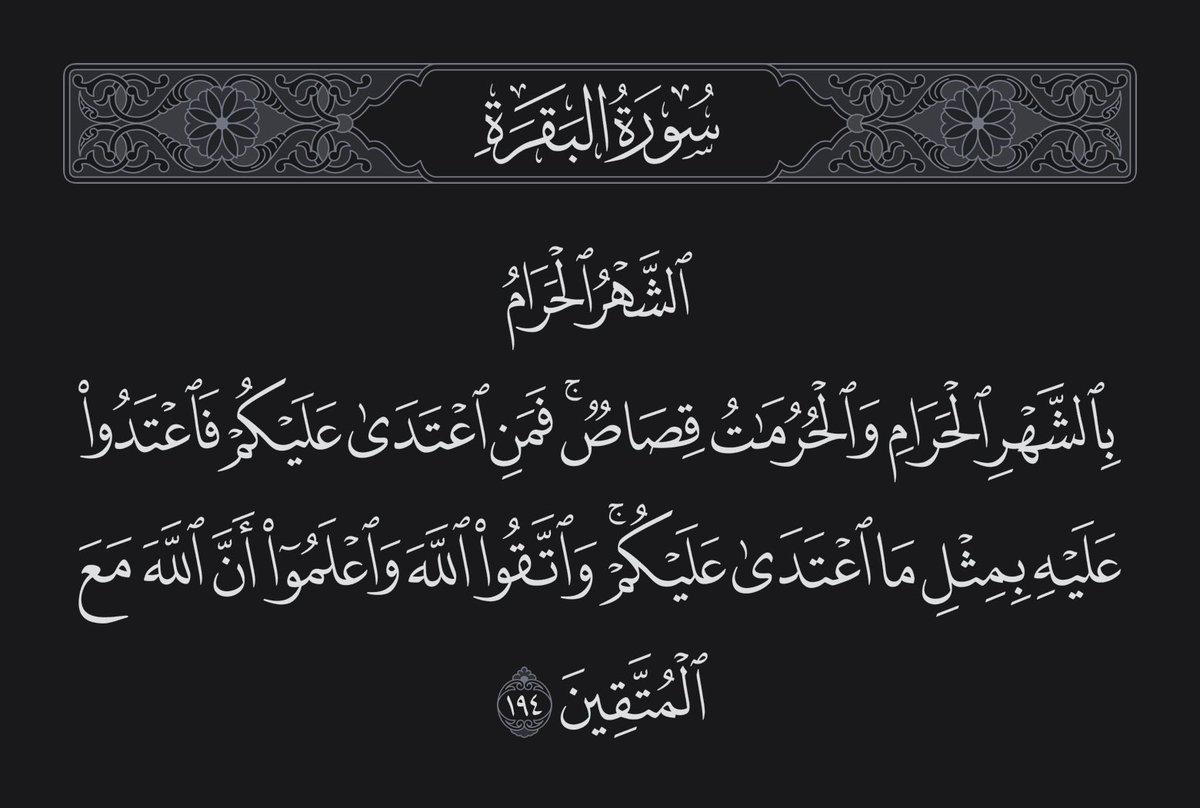 سُورَةُ البَقَرَةِ
ٱلشَّهْرُ ٱلْحَرَامُ
بِٱلشَّهْرِ ٱلْحَرَامِ وَٱلْحُرُمَٰتُ قِصَاصٌۭ ۚ فَمَنِ ٱعْتَدَىٰ عَلَيْكُمْ فَٱعْتَدُوا۟
عَلَيْهِ بِمِثْلِ مَا ٱعْتَدَىٰ عَلَيْكُمْ ۚ وَٱتَّقُوا۟ ٱللَّهَ وَٱعْلَمُوٓا۟ أَنَّ ٱللَّهَ مَعَ
ٱلْمُتَّقِينَ ١٩٤